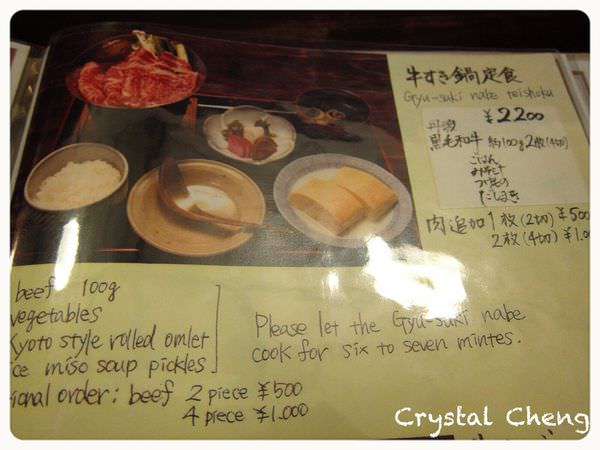 牛すき鍋定食
Gyu-suki nabe teishoku
¥2200
丹波
黒毛和牛 約100g2枚(4切)
ごはん
みそ汁
つけもの
だしまき
肉追加1枚(2切)¥500
2枚(4切)¥1.00
beef 100g
vegetables
Kyoto style rolled omlet
ice miso soup pickles
ional order: beef 2 piece ¥500
4 piece ¥1.000
Please let the Gyu-suki nabe
cook for six to seven mintes.
Crystal Cheng